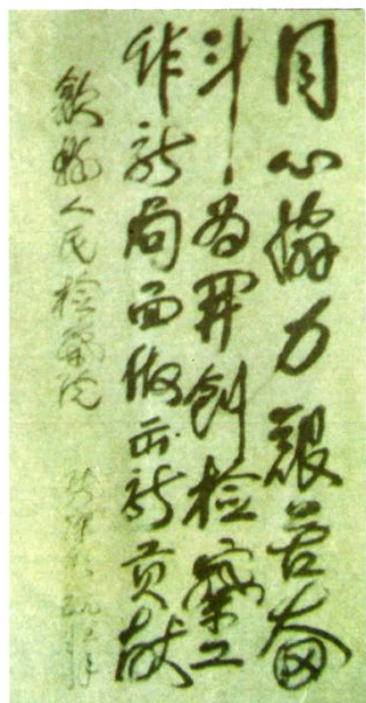 同心协力艰苦奋
斗，为开创检察工
作新局面做出新贡献
歙县人民检察院